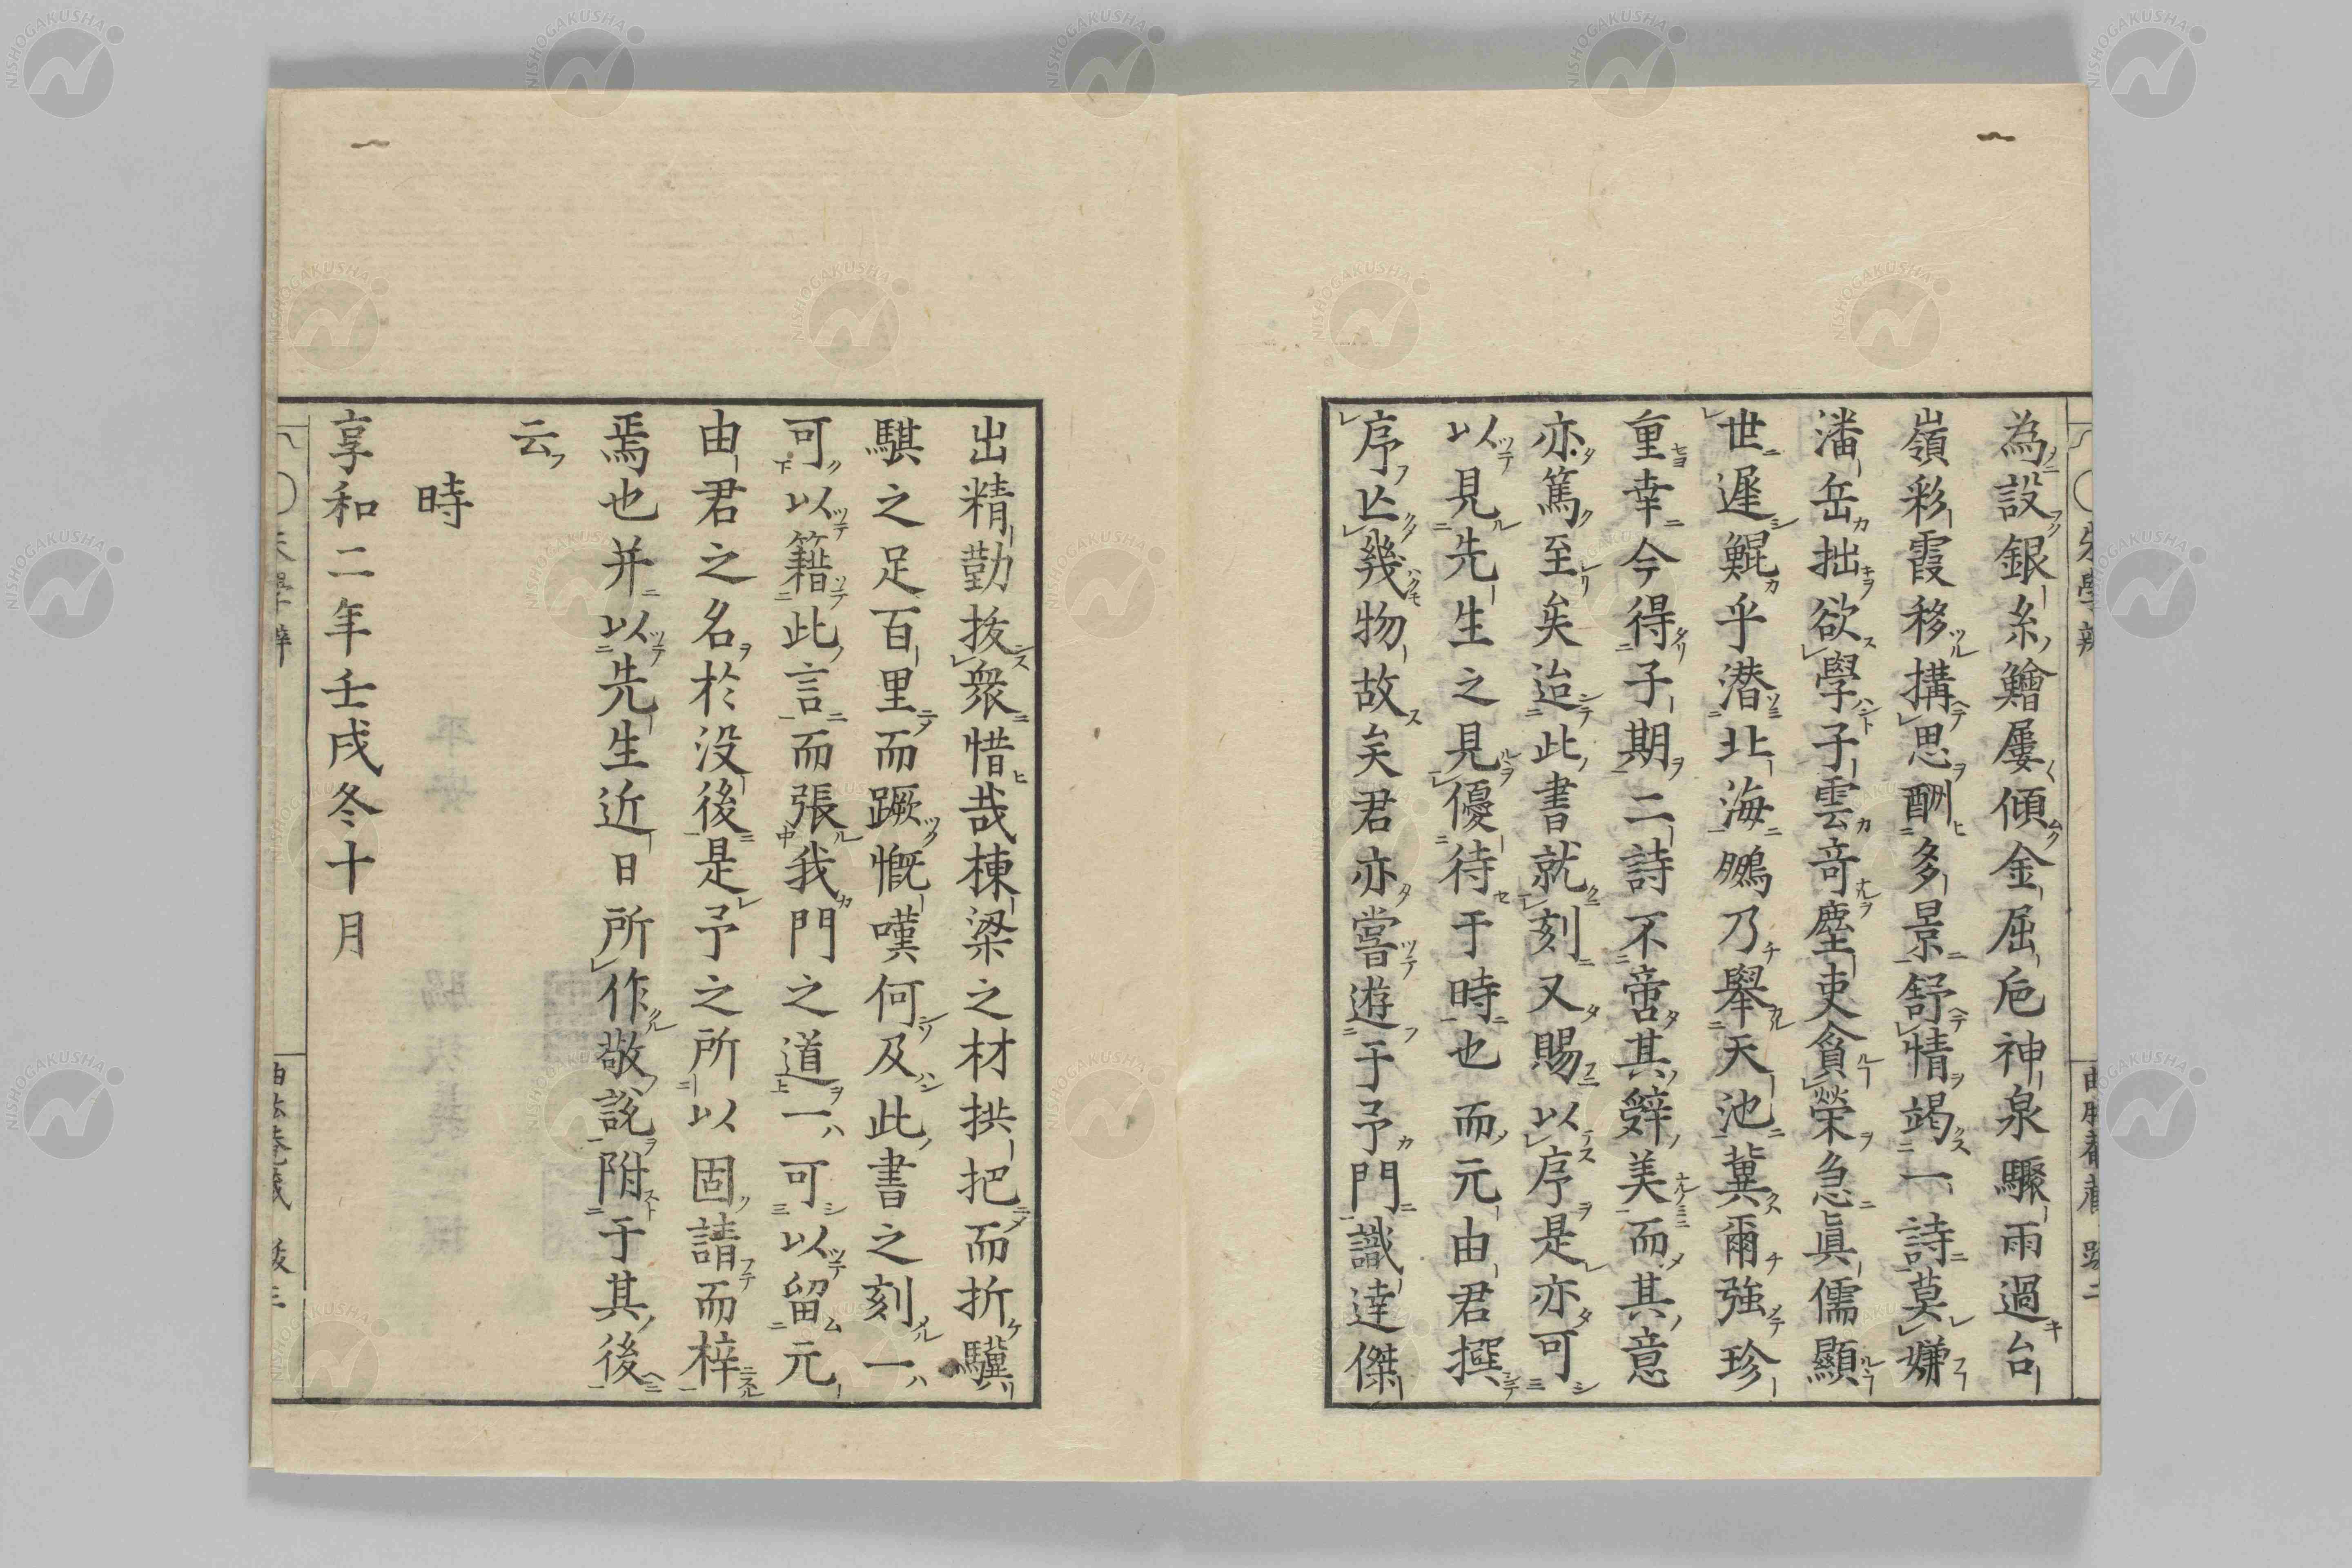 為設銀糸鱠屢傾金屈巵神泉驟雨過台
嶺彩霞移搆思酬多景舒情竭一詩莫嫌
潘岳拙欲學子雲竒塵吏貪榮急眞儒顯
世遲鯤乎潜北海鵬乃擧天池冀爾強珍
重幸今得子期二詩不啻其辤美而其意
亦篤至矣迨此書就刻又賜以序是亦可
以見先生之見優待于時也而元由君撰
序亾幾物故矣君亦嘗遊于予門識達傑
出精勤抜衆惜哉棟梁之材拱把而折驥
騏之足百里而蹶慨嘆何及此書之刻一
可以籍此言而張我門之道一可以留元
由君之名於没後是予之所以固請而梓
焉也并以先生近日所作敬說附于其後
云
時
享和二年壬戌冬十月